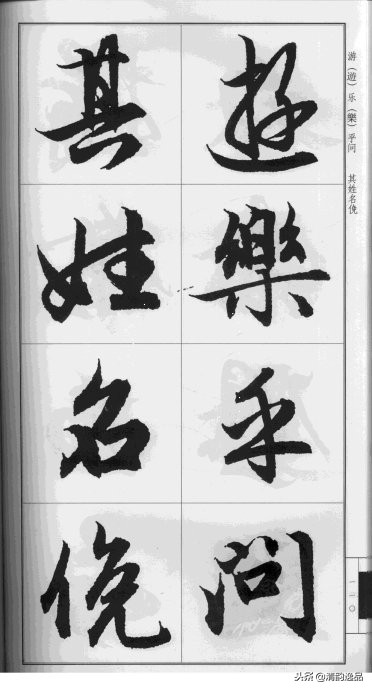 游（遊）乐（樂）乎问　其姓名俛
遊樂乎問
其姓名俛
一二〇
头条@清韵逸品